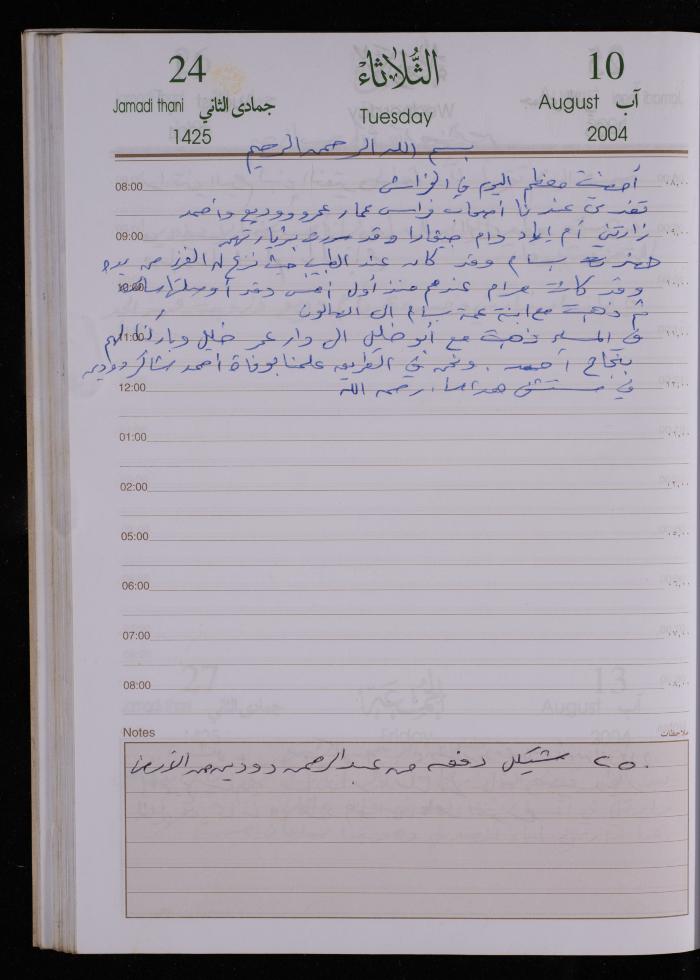 24 الثُّلاثاء 10
Jamadi thani جمادى الثاني Tuesday August آب
1425 2004
بسم الله الرحمن الرحيم
08:00 أمضيت معظم اليوم في الفراش ٠٨,٠٠
تغدى عندنا أصحاب فراس عمار عمرو ووديع وأحمد
09:00 زارتني أم إياد وأم وقد سررت بزيارتهن ٠٩,٠٠
حضر بسام وقد كان عند الطبيب حيث نزع له الغرز من يده
10:00 وقد كانت مرام عندهم منذ أول أمس وقد أوصلتها ١٠,٠٠
ثم ذهبت مع ابنة عمة بسام الى الصالون
11:00 في المساء ذهبت مع أبو خليل الى دار عمر خليل وباركنا لهم ١١,٠٠
بنجاح أحمد . ونحن في الطريق علمنا بوفاة أحمد شاكر دودين
12:00 في مستشفى هداسا. رحمه الله ١٢,٠٠
01:00 ٠١,٠٠
02:00 ٠٢,٠٠
05:00 ٠٥,٠٠
06:00 ٠٦,٠٠
07:00 ٠٧,٠٠
08:00 ٠٨,٠٠
Notes ملاحظات
٢٥٠ شيكل دفعة من عبدالرحمن دودين من الأرض